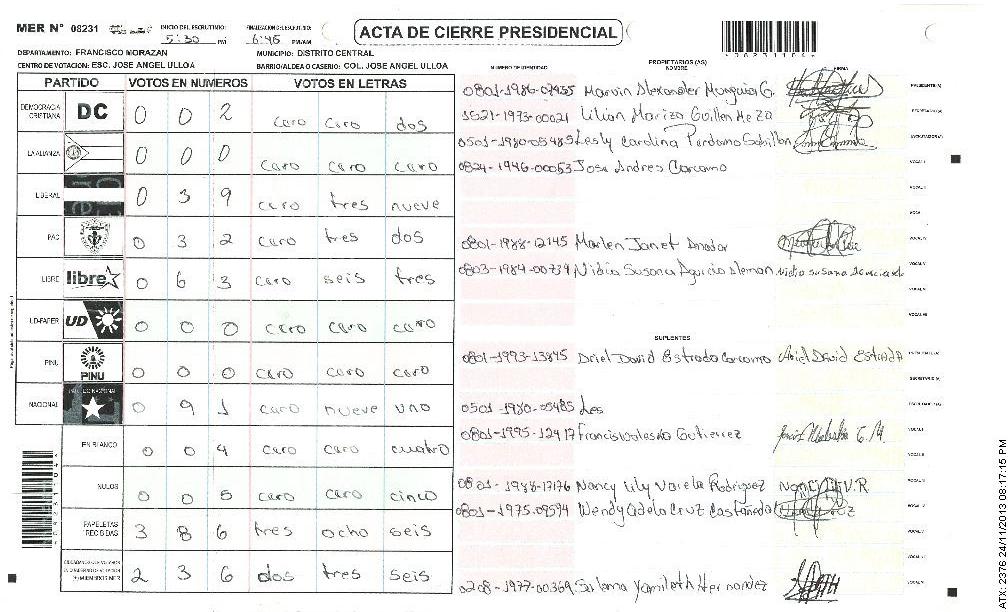 MER Nº 08231
INICIO DEL ESCRUTINIO: 5:30 PM
FINALIZACION DEL ESCRUTINIO: 6:45 PM/AM
ACTA DE CIERRE PRESIDENCIAL
DEPARTAMENTO: FRANCISCO MORAZAN
MUNICIPIO: DISTRITO CENTRAL
CENTRO DE VOTACION: ESC. JOSE ANGEL ULLOA
BARRIO/ALDEA O CASERIO: COL. JOSE ANGEL ULLOA
PARTIDO VOTOS EN NUMEROS VOTOS EN LETRAS
DEMOCRACIA CRISTIANA DC 0 0 2 cero cero dos
LA ALIANZA 0 0 0 cero cero cero
LIBERAL 0 3 9 cero tres nueve
PAC 0 3 2 cero tres dos
LIBRE libre 0 6 3 cero seis tres
UD-FAPER UD 0 0 0 cero cero cero
PINU PINU 0 0 0 cero cero cero
NACIONAL 0 9 1 cero nueve uno
EN BLANCO 0 0 4 cero cero cuatro
NULOS 0 0 5 cero cero cinco
PAPELETAS RECIBIDAS 3 8 6 tres ocho seis
2 3 6 dos tres seis
NUMERO DE IDENTIDAD
PROPIETARIOS (AS)
NOMBRE
FIRMA
Marvin Alexander Munguia G. PRESIDENTE (A)
1521-1973-00021 Lilian Mariza Guillen Meza SECRETARIO (A)
0501-1980-05485 Lesly Carolina Perdomo ESCRUTADOR (A)
0824-1946-00053 Jose Andres Carcamo VOCAL I
0801-1988-12145 Marlen Janet Amador
0803-1984-00734 Nidia Susana
SUPLENTES
0801-1993-13845 Ariel David Estrada Carcamo Ariel David Estrada
0501-1980-05485 Les
0801-1995-12417 Francis Gutierrez
0801-1988-17176 Nancy Lily Varela Rodriguez Nancy V.R
0801-1975-09594 Wendy Adela Cruz Castañeda
0208-1977-00369 Sulema Yamileth Hernandez
ATX-2376 24/11/2013 08:17:15 PM